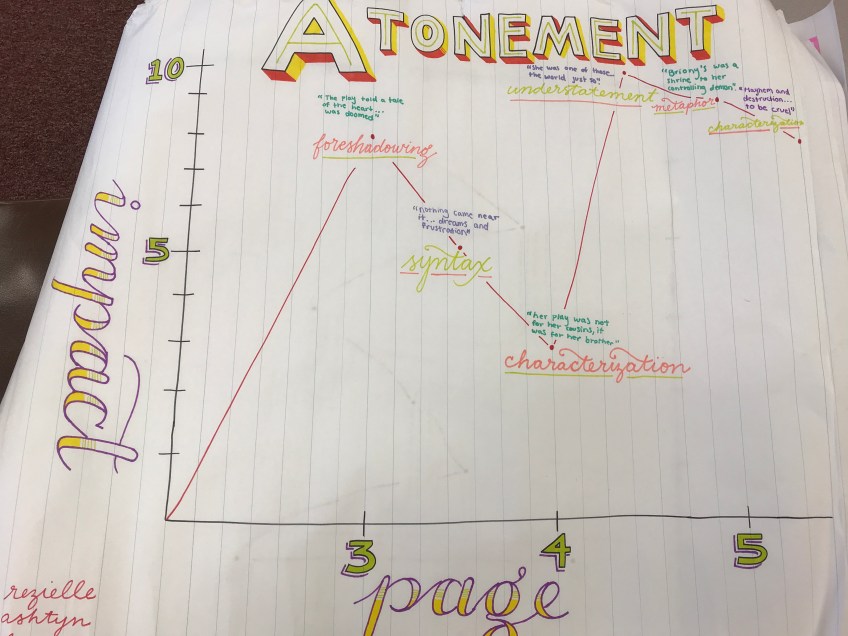 ATONEMENT
10
5
impact
"The play told a tale
of the heart...
was doomed"
foreshadowing
"nothing came near
it... dreams and
frustration"
syntax
"her play was not
for her cousins, it
was for her brother"
characterization
"She was one of those...
the world just so"
understatement
"Briony's was a
shrine to her
controlling demon".
metaphor
"Mayhem and
destruction...
to be cruel"
characterization
3
4
5
page
rezielle
ashtyn